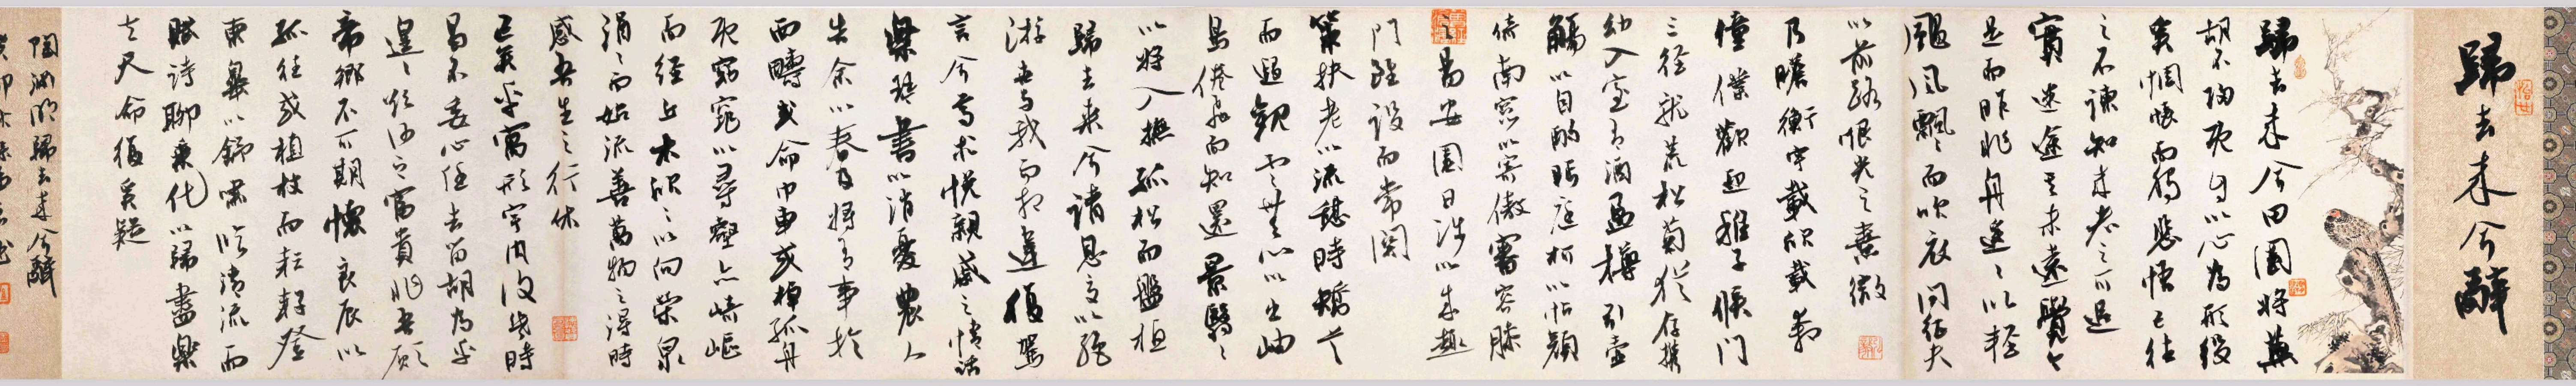 歸去來兮辭
歸去來兮田園將蕪
胡不歸既自以心為形役
奚惆悵而獨悲悟已往
之不諫知來者之可追
實迷途其未遠覺今
是而昨非舟遙遙以輕
颺風飄飄而吹衣問征夫
以前路恨光之熹微
乃瞻衡宇載欣載奔
僮僕歡迎稚子候門
三徑就荒松菊猶存攜
幼入室有酒盈樽引壺
觴以自酌眄庭柯以怡顏
倚南窗以寄傲審容膝
之易安園日涉以成趣
門雖設而常關
策扶老以流憩時矯首
而遐觀雲無心以出岫
鳥倦飛而知還景翳翳
以將入撫孤松而盤桓
歸去來兮請息交以絕
游世與我而相違復駕
言兮焉求悅親戚之情話
樂琴書以消憂農人
告余以春及將有事於
西疇或命巾車或棹孤舟
既窈窕以尋壑亦崎嶇
而經丘木欣欣以向榮泉
涓涓而始流善萬物之得時
感吾生之行休
已矣乎寓形宇內復幾時
曷不委心任去留胡為乎
遑遑欲何之富貴非吾願
帝鄉不可期懷良辰以
孤往或植杖而耘耔登
東皋以舒嘯臨清流而
賦詩聊乘化以歸盡樂
夫天命復奚疑
陶淵明歸去來兮辭
癸卯